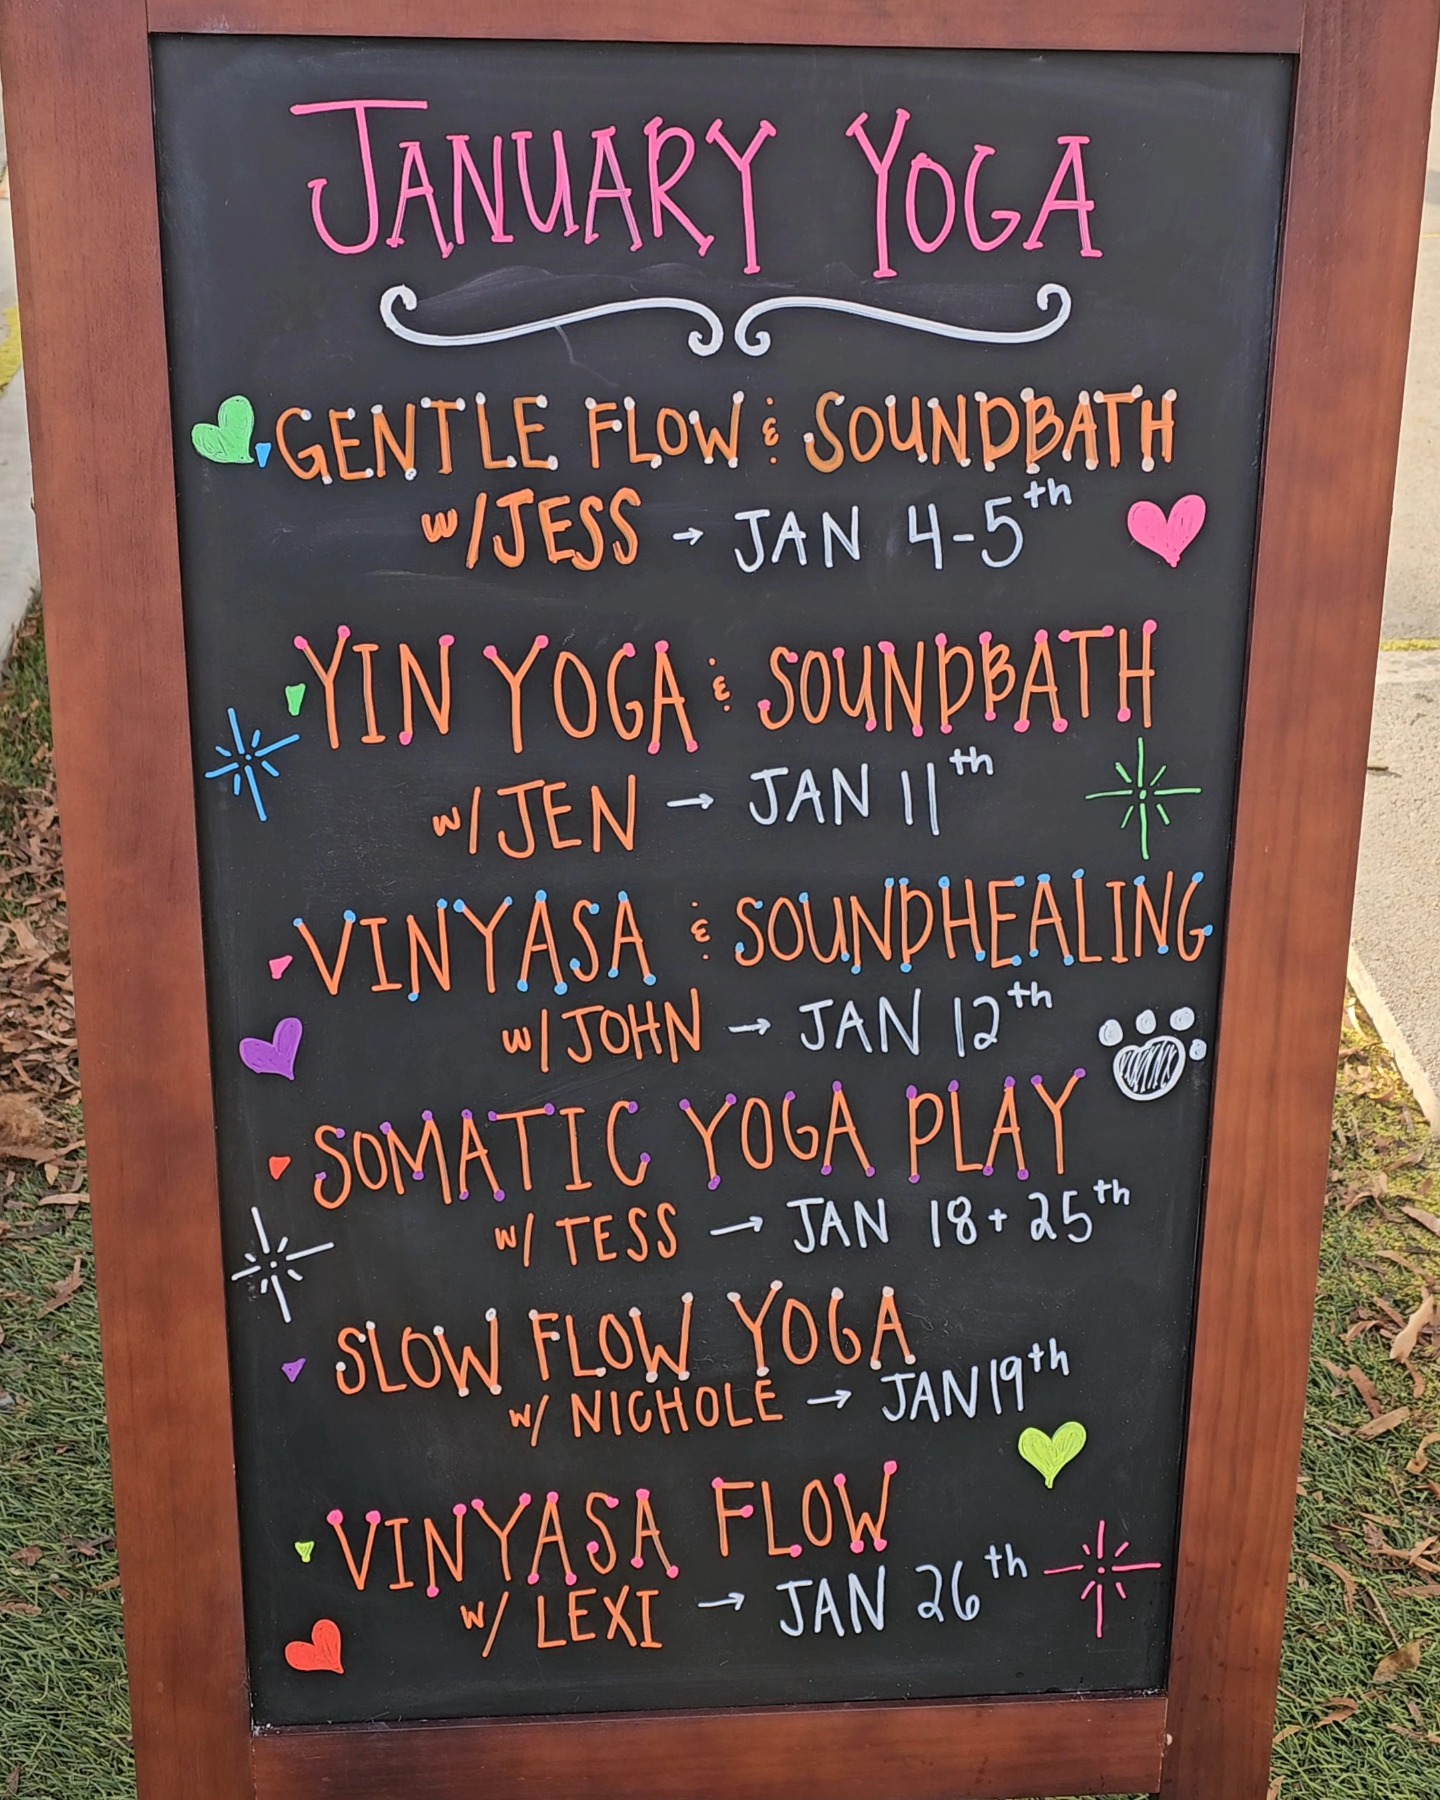 JANUARY YOGA
GENTLE FLOW & SOUNDBATH
w/JESS → JAN 4-5th
YIN YOGA & SOUNDBATH
w/JEN → JAN 11th
VINYASA & SOUNDHEALING
w/JOHN → JAN 12th
SOMATIC YOGA PLAY
w/ TESS → JAN 18 + 25th
SLOW FLOW YOGA
w/ NICHOLE → JAN 19th
VINYASA FLOW
w/ LEXI → JAN 26th